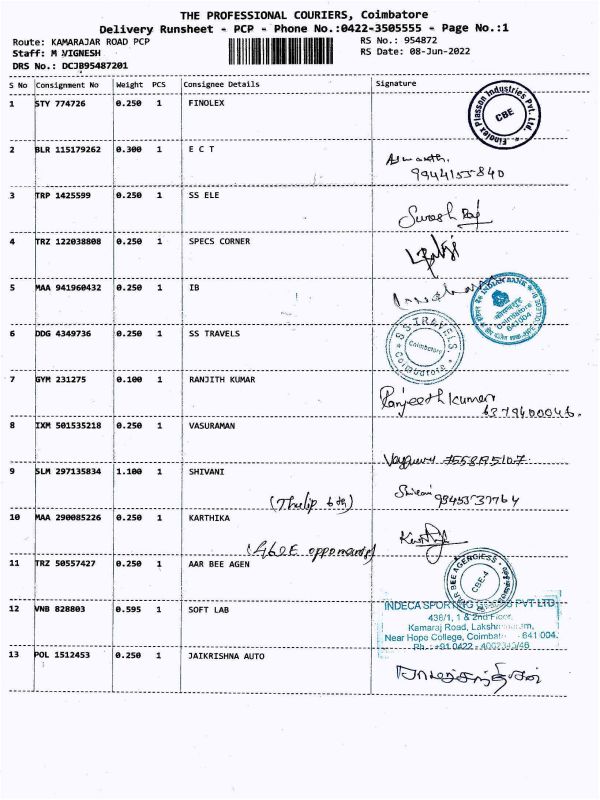 THE PROFESSIONAL COURIERS, Coimbatore
Delivery Runsheet - PCP - Phone No.:0422-3505555 - Page No.:1
Route: KAMARAJAR ROAD PCP
RS No.: 954872
Staff: M VIGNESH
RS Date: 08-Jun-2022
DRS No.: DCJB95487201
S No Consignment No Weight PCS Consignee Details Signature
1 STY 774726 0.250 1 FINOLEX
Finolex Plasson Industries Pvt. Ltd.
CBE
2 BLR 115179262 0.300 1 E C T
Aswanth.
9944155840
3 TRP 1425599 0.250 1 SS ELE
Suresh
4 TRZ 122038808 0.250 1 SPECS CORNER
5 MAA 941960432 0.250 1 IB
INDIAN BANK
Coimbatore
641004
6 DDG 4349736 0.250 1 SS TRAVELS
S.S.TRAVELS.
Coimbatore
Coimbatore
7 GYM 231275 0.100 1 RANJITH KUMAR
Ranjeeth Kumar
6379400046.
8 IXM 501535218 0.250 1 VASURAMAN
9 SLM 297135834 1.100 1 SHIVANI
Shivani 9945537764
(Thulip
10 MAA 290085226 0.250 1 KARTHIKA
11 TRZ 50557427 0.250 1 AAR BEE AGEN
AAR BEE AGENCIESS
CBE-4
12 VNB 828803 0.595 1 SOFT LAB
INDECA SPORTING PVT LTD
436/1, 1 & 2nd Floor,
Kamaraj Road,
Near Hope College, Coimbatore 641 004.
Ph : +91 0422 -
13 POL 1512453 0.250 1 JAIKRISHNA AUTO